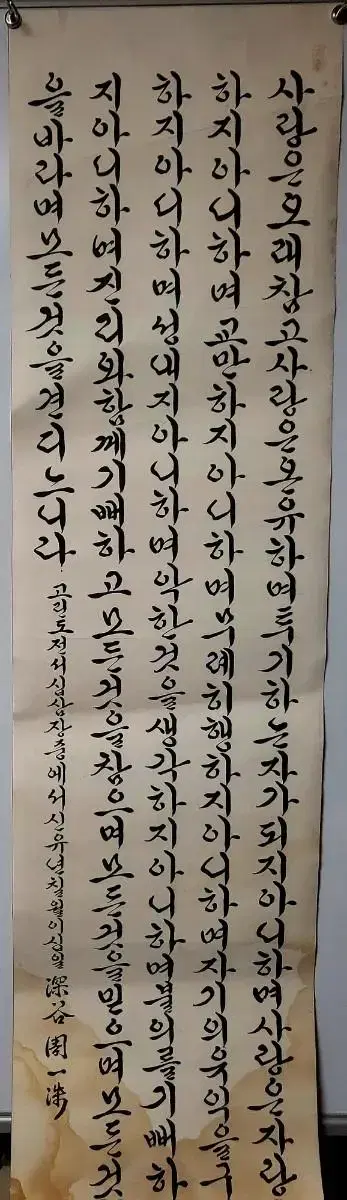 사랑은오래참고사랑은온유하며투기하는자가되지아니하며사랑은자랑
하지아니하며교만하지아니하며무례히행하지아니하며자기의유익을구
하지아니하며성내지아니하며악한것을생각하지아니하며불의를기뻐하
지아니하며진리와함께기뻐하고모든것을참으며모든것을믿으며모든것
을바라며모든것을견디느니라 고린도전서십삼장중에서신유년칠월이십일 深谷